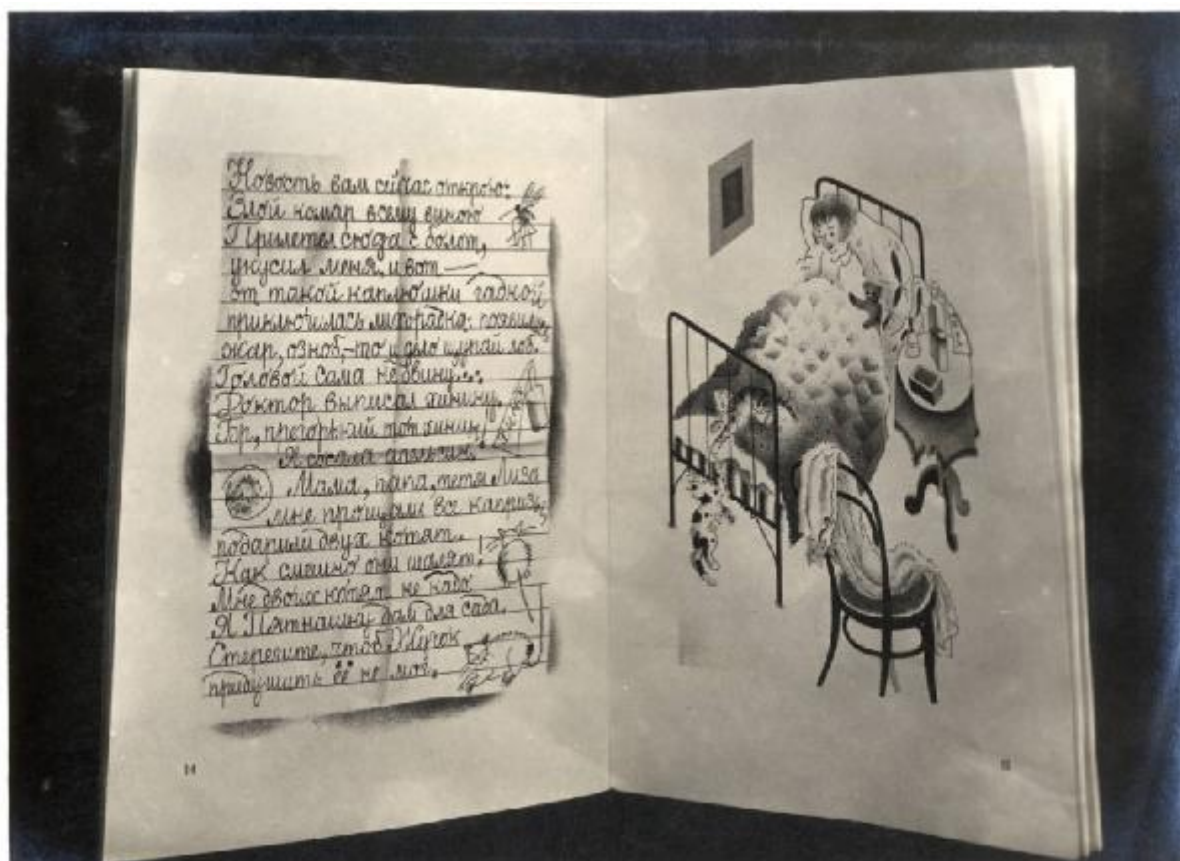 Новость вам сейчас открою:
Злой комар всему виною
Прилетел сюда с болот,
укусил меня, и вот —
вот такой каплюшки гадкой
приключилась лихорадка: появил
жар, озноб, — то и дело щупай лоб.
Головой сама не двину...
Доктор выписал хинину.
Бр, прегорький этот хинин,
Я сосала апельсин.
Мама, папа, тетя Лиза
мне прощали все капризы,
подарили двух котят.
Как смешно они шалят!
Мне двоих котят не надо
Я Пятнашку дам для сада.
Стерегите, чтоб Жучок
придушить её не мог.
14
15